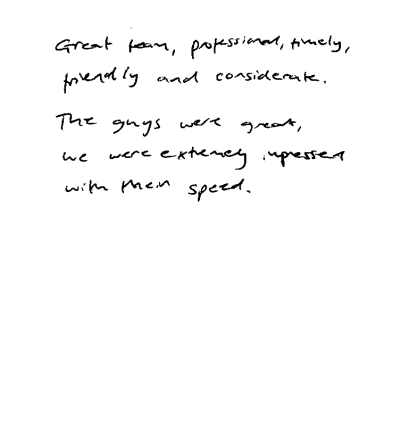 Great team, professional, timely,
friendly and considerate.
The guys were great,
we were extremely impressed
with their speed.